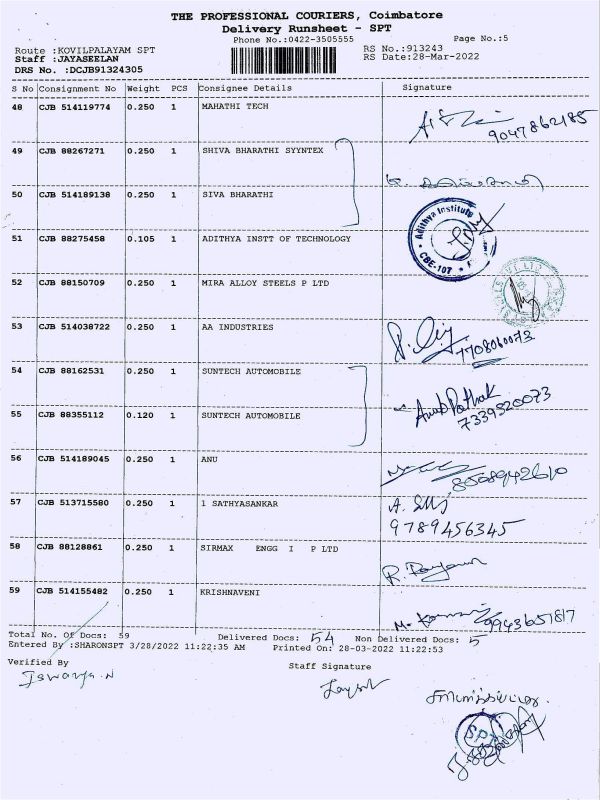 THE PROFESSIONAL COURIERS, Coimbatore
Delivery Runsheet - SPT
Phone No.:0422-3505555
Page No.:5
Route :KOVILPALAYAM SPT
RS No.:913243
Staff :JAYASEELAN
RS Date:28-Mar-2022
DRS No. :DCJB91324305
S No Consignment No Weight PCS Consignee Details Signature
48 CJB 514119774 0.250 1 MAHATHI TECH
9047862185
49 CJB 88267271 0.250 1 SHIVA BHARATHI SYYNTEX
50 CJB 514189138 0.250 1 SIVA BHARATHI
Adithya Institute
CBE-107
51 CJB 88275458 0.105 1 ADITHYA INSTT OF TECHNOLOGY
52 CJB 88150709 0.250 1 MIRA ALLOY STEELS P LTD
53 CJB 514038722 0.250 1 AA INDUSTRIES
7708060073
54 CJB 88162531 0.250 1 SUNTECH AUTOMOBILE
Anub Pathak
7339520073
55 CJB 88355112 0.120 1 SUNTECH AUTOMOBILE
56 CJB 514189045 0.250 1 ANU
57 CJB 513715580 0.250 1 1 SATHYASANKAR
9789456345
58 CJB 88128861 0.250 1 SIRMAX ENGG I P LTD
59 CJB 514155482 0.250 1 KRISHNAVENI
9943651817
Total No. Of Docs: 59 Delivered Docs: 54 Non Delivered Docs: 5
Entered By :SHARONSPT 3/28/2022 11:22:35 AM Printed On: 28-03-2022 11:22:53
Verified By
Staff Signature
Iswarya.N
SPT